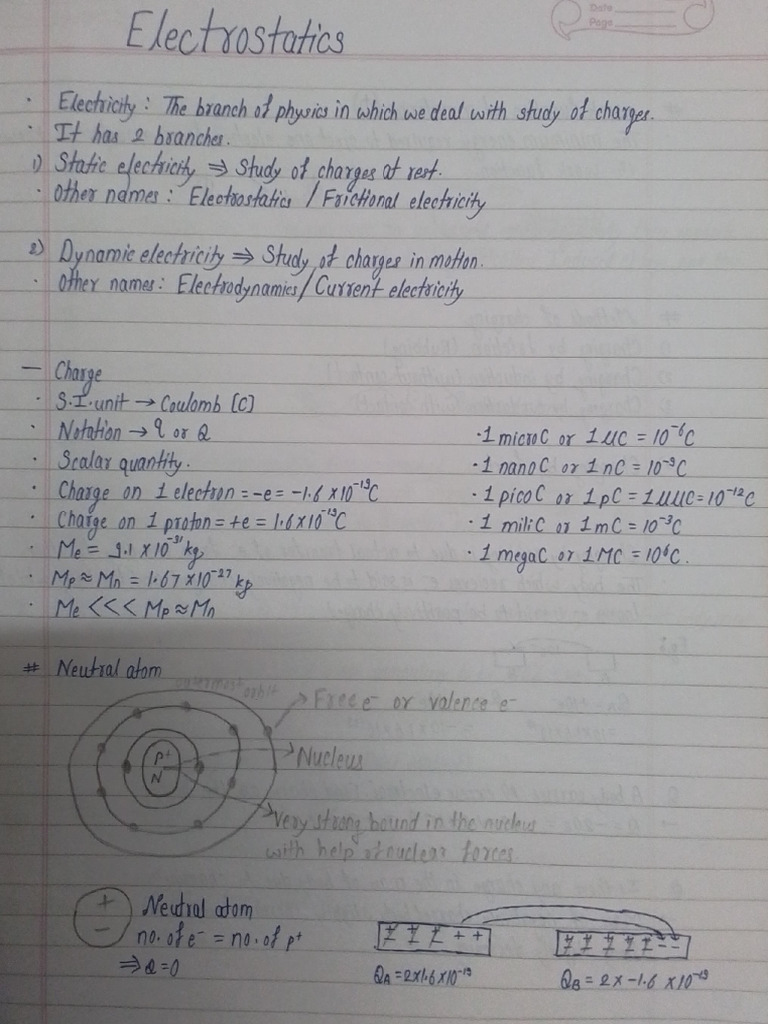 Date
Page
Electrostatics
· Electricity : The branch of physics in which we deal with study of charges.
· It has 2 branches.
1) Static electricity ⇒ Study of charges at rest.
· Other names : Electrostatics / Frictional electricity
2) Dynamic electricity ⇒ Study of charges in motion.
· Other names : Electrodynamics / Current electricity
— Charge
· S.I. unit → Coulomb [C]
· Notation → q or Q
· Scalar quantity.
· Charge on 1 electron = -e = -1.6 x 10⁻¹⁹C
· Charge on 1 proton = +e = 1.6 x 10⁻¹⁹C
· Me = 9.1 x 10⁻³¹ kg
· Mp ≈ Mn = 1.67 x 10⁻²⁷ kg
· Me <<< Mp ≈ Mn
· 1 microC or 1 μC = 10⁻⁶C
· 1 nanoC or 1 nC = 10⁻⁹C
· 1 picoC or 1 pC = 1 μμC = 10⁻¹²C
· 1 miliC or 1 mC = 10⁻³C
· 1 megaC or 1 MC = 10⁶C.
# Neutral atom
outermost orbit
Free e⁻ or valence e⁻
P⁺
N
Nucleus
Very strong bound in the nucleus
with help of nuclear forces
+
−
Neutral atom
no. of e⁻ = no. of p⁺
⇒ Q = 0
+ +
− −
QA = 2x1.6x10⁻¹⁹
QB = 2x -1.6 x10⁻¹⁹